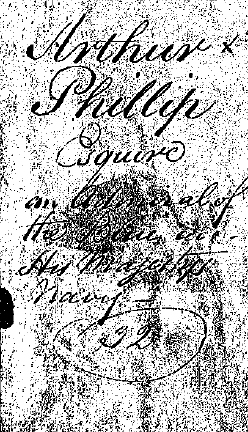 Arthur
Phillip
Esquire
an Admiral of
the
His Majestys
Navy